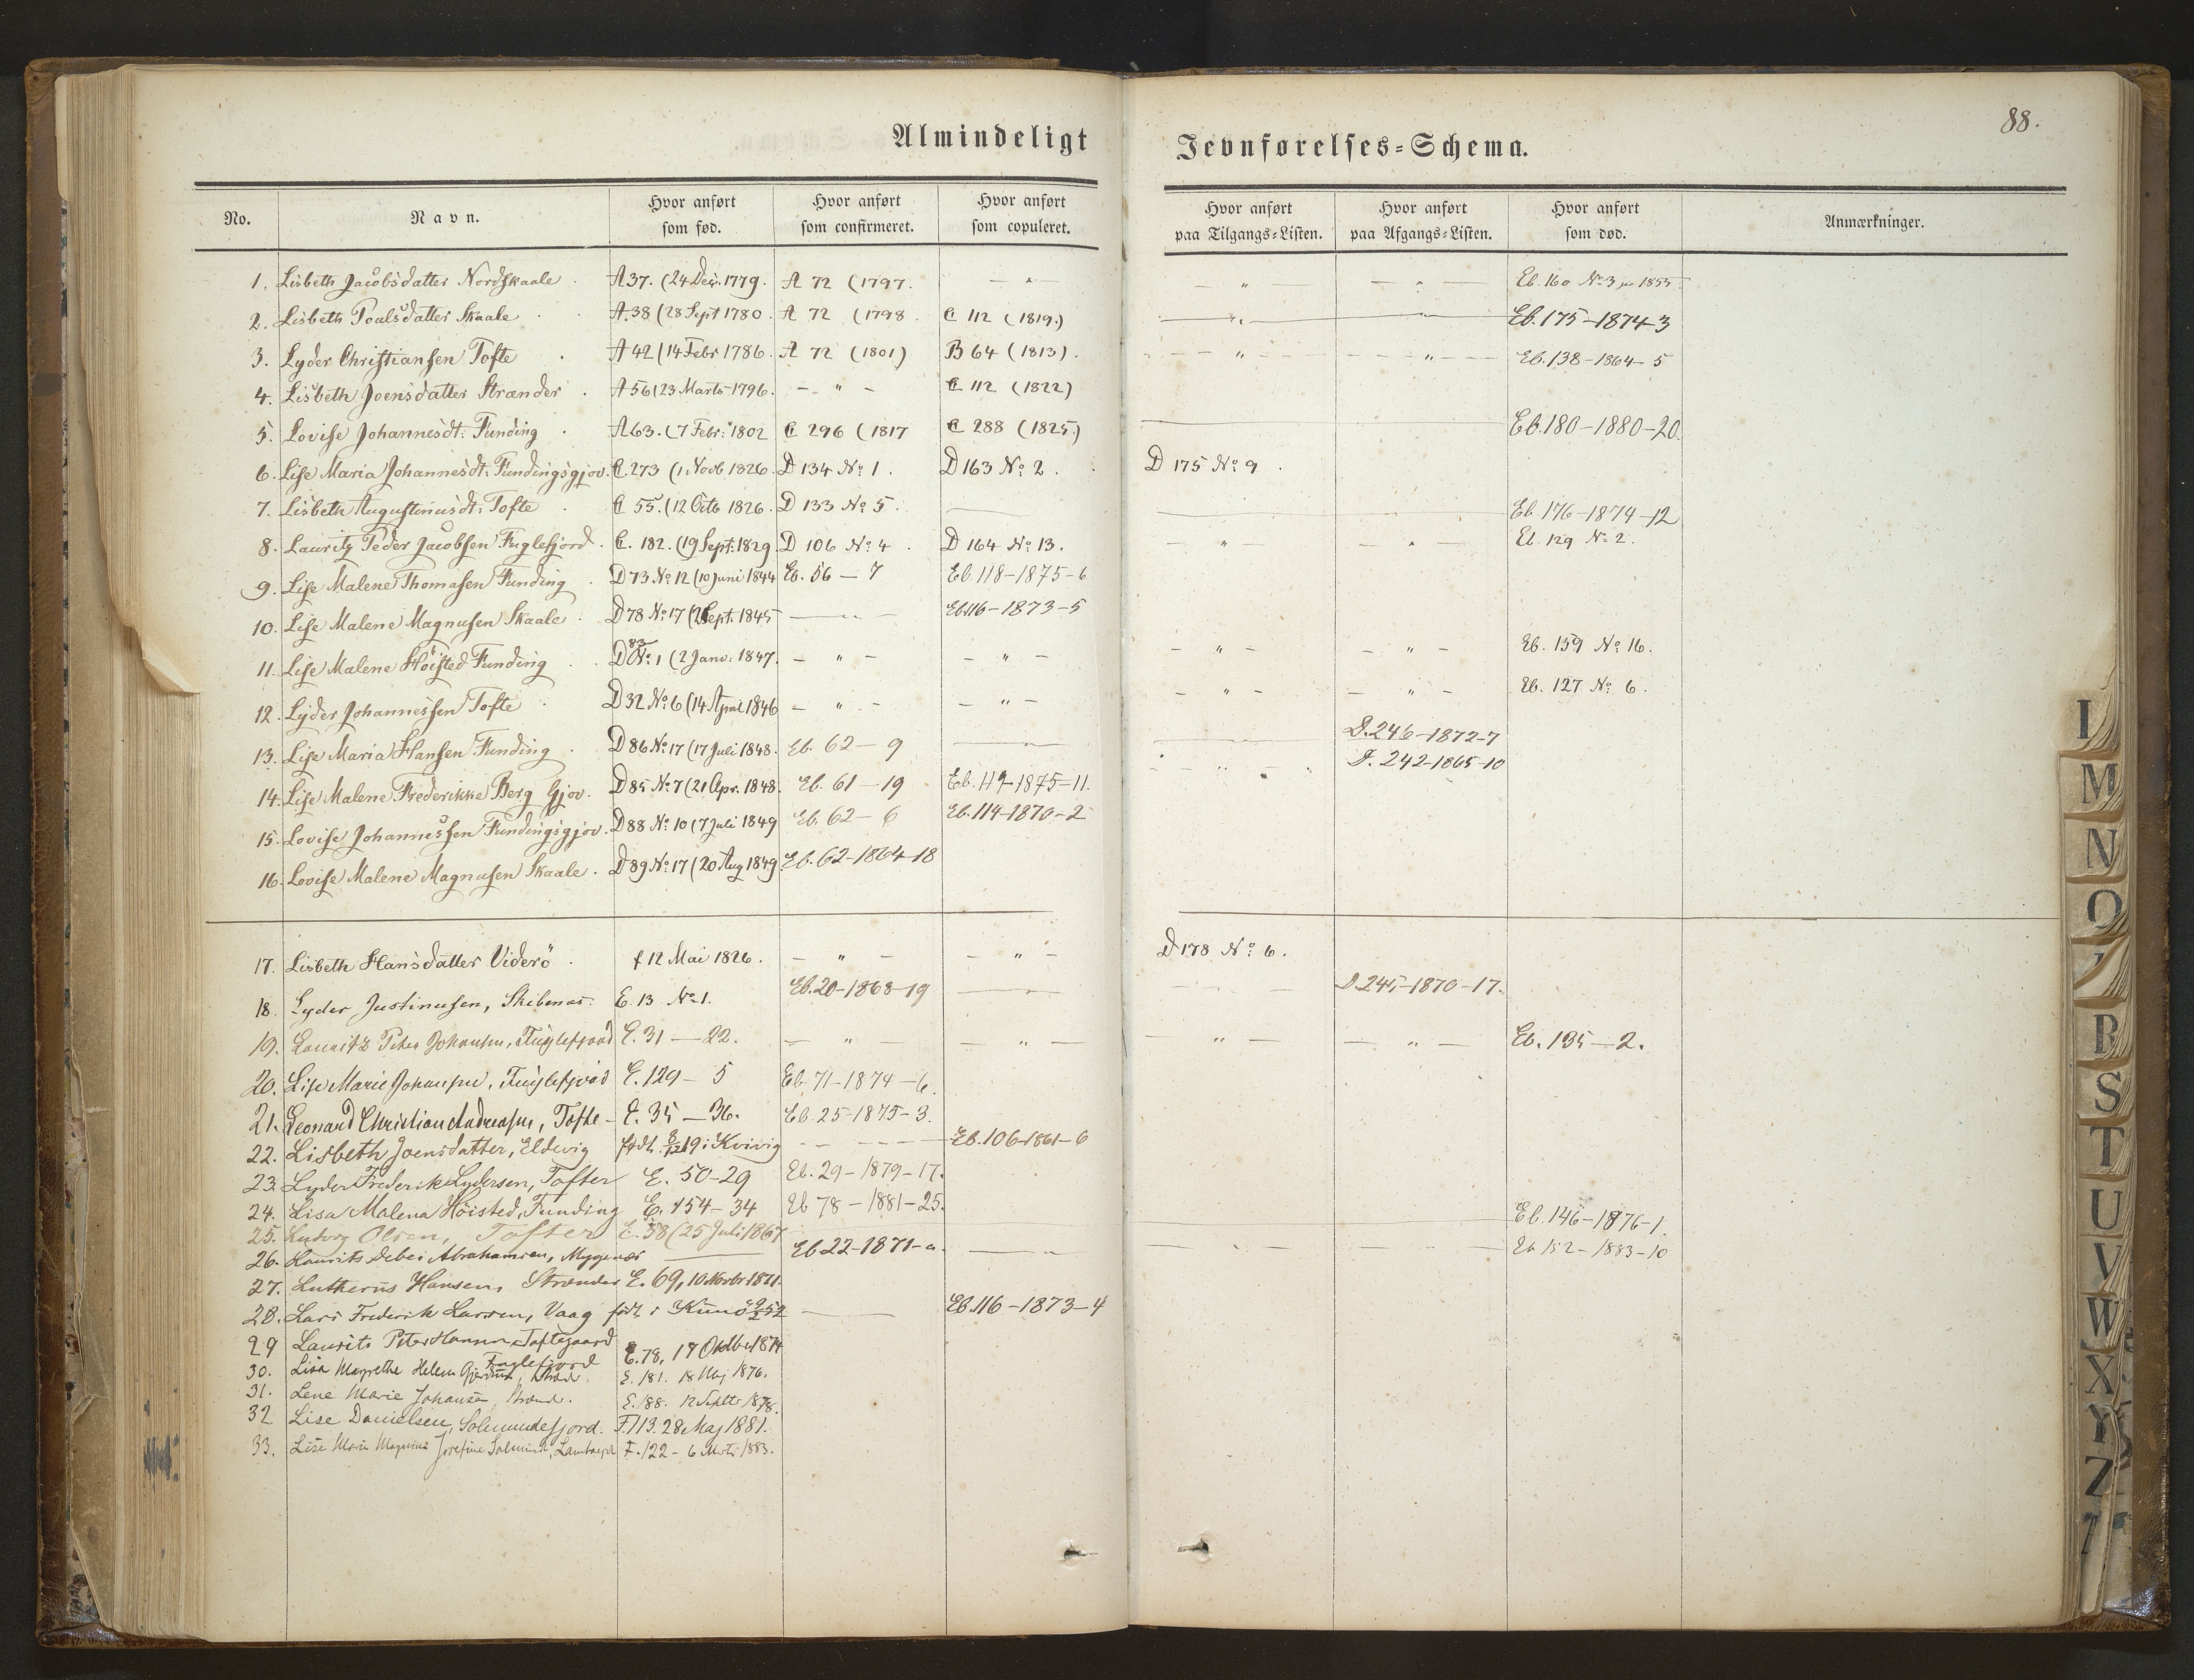 88.
Almindeligt Jevnførelses=Schema.
No. Navn. Hvor anført som fød. Hvor anført som confirmeret. Hvor anført som copuleret. Hvor anført paa Tilgangs=Listen. Hvor anført paa Afgangs=Listen. Hvor anført som død. Anmærkninger.
1. Lisbeth Jacobsdatter Nordskaale. A 37. (24 Dec. 1779. A 72 (1797. — " — — " — — " — Eb. 160 No 3 1855.
2. Lisbeth Poulsdatter Skaale. A.38 (28 Sept 1780. A 72 (1798. C 112 (1819.) — " — — " — Eb. 175-1874-3
3. Lyder Christiansen Tofte. A 42 (14 Febr 1786. A 72 (1801) B 64 (1813). — " — — " — Eb. 138-1864-5
4. Lisbeth Joensdatter Strænder. A 56 (23 Marts 1796. — " — C 112 (1822)
5. Lovise Johannesdt: Funding. A 63. (7 Febr: 1802 C 296 (1817 C 288 (1825.) Eb. 180-1880-20.
6. Lise Maria Johannesdt: Fundingsgjov. C. 273 (1 Novb 1826. D 134 No 1. D 163 No 2. D 175 No 9.
7. Lisbeth Augustinusdt: Tofte. C 55. (12 Octb 1826. D 133 No 5. — Eb. 176-1874-12
8. Lauritz Peder Jacobsen Fuglefjord. C. 182. (19 Sept: 1829 D 106 No 4. D 164 No 13. — " — — " — Eb. 129 No 2.
9. Lise Malene Thomasen Funding. D 73 No 12 (10 Juni 1844 Eb. 56 — 7 Eb. 118-1875-6
10. Lise Malene Magnusen Skaale. D 78 No 17 (2 Sept. 1845 — Eb. 116-1873-5
11. Lise Malene Höisted Funding. D 83 No 1 (2 Janv: 1847. — " — — " — — " — — " — Eb. 159 No 16.
12. Lyder Johannessen Tofte. D 32 No 6 (14 April 1846 — " — — " — — " — — " — Eb. 127 No 6.
13. Lise Maria Hansen Funding. D 86 No 17 (17 Juli 1848. Eb. 62 — 9 — D. 246-1872-7
14. Lise Malene Frederikke Berg Gjov. D 85 No 7 (21 Apr. 1848. Eb. 61 — 19 Eb. 119-1875-11. — " — D. 242-1865-10
15. Lovise Johannessen Fundingsgjov. D 88 No 10 (7 Juli 1849 Eb. 62 — 6 Eb. 114-1870-2
16. Lovise Malene Magnusen Skaale. D 89 No 17 (20 Aug 1849. Eb. 62-1864-18
17. Lisbeth Hansdatter Viderö. f 12 Mai 1826. — " — — " — D 178 No 6.
18. Lyder Justinusen, Skibenæs. E. 13 No 1. Eb. 20-1868-19 — D. 245-1870-17.
19. Lauritz Peter Johansen, Fuglefjord E. 31 — 22. — " — — " — — " — — " — Eb. 135 — 2.
20. Lise Marie Johansen, Fuglefjord E. 129 — 5 Eb. 71-1874-6.
21. Leonard Christian Andreasen, Tofte — E. 35 — 36. Eb. 25-1875-3.
22. Lisbeth Joensdatter, Eldevig født 8/12 19 i Kvivig — Eb. 106-1861-6
23. Lyder Frederik Lydersen, Tofter E. 50-29 Eb. 29-1879-17.
24. Lisa Malena Höisted, Funding E. 154-34 Eb 78-1881-25. Eb. 146-1876-1.
25. Ludvig Olsen, Tofter E. 58 (25 Juli 1867 Eb 152-1883-10
26. Laurits Debes Abrahamsen, Myggenæs — Eb 22-1871-a.
27. Lutherus Hansen, Strænder E. 69, 10 Novbr 1871.
28. Lars Frederik Larsen, Vaag født i Kunö — Eb. 116-1873-4
29 Laurits Peter Hansen Toftegaard Fuglefjord E. 78, 17 Oktbr 1874
30. Lisa Margrethe Helena E. 181. 18 Maj 1876.
31. Lene Marie Johansen, Strænd. E. 188. 12 Septbr 1878.
32 Lise Danielsen, Solmundefjord. F. 113. 28 Maj 1881.
33. Lise Marie Josefine F. 122 - 6 Marts 1883.
I
M
N
O
R
S
T
U
V
W
X
Y
Z